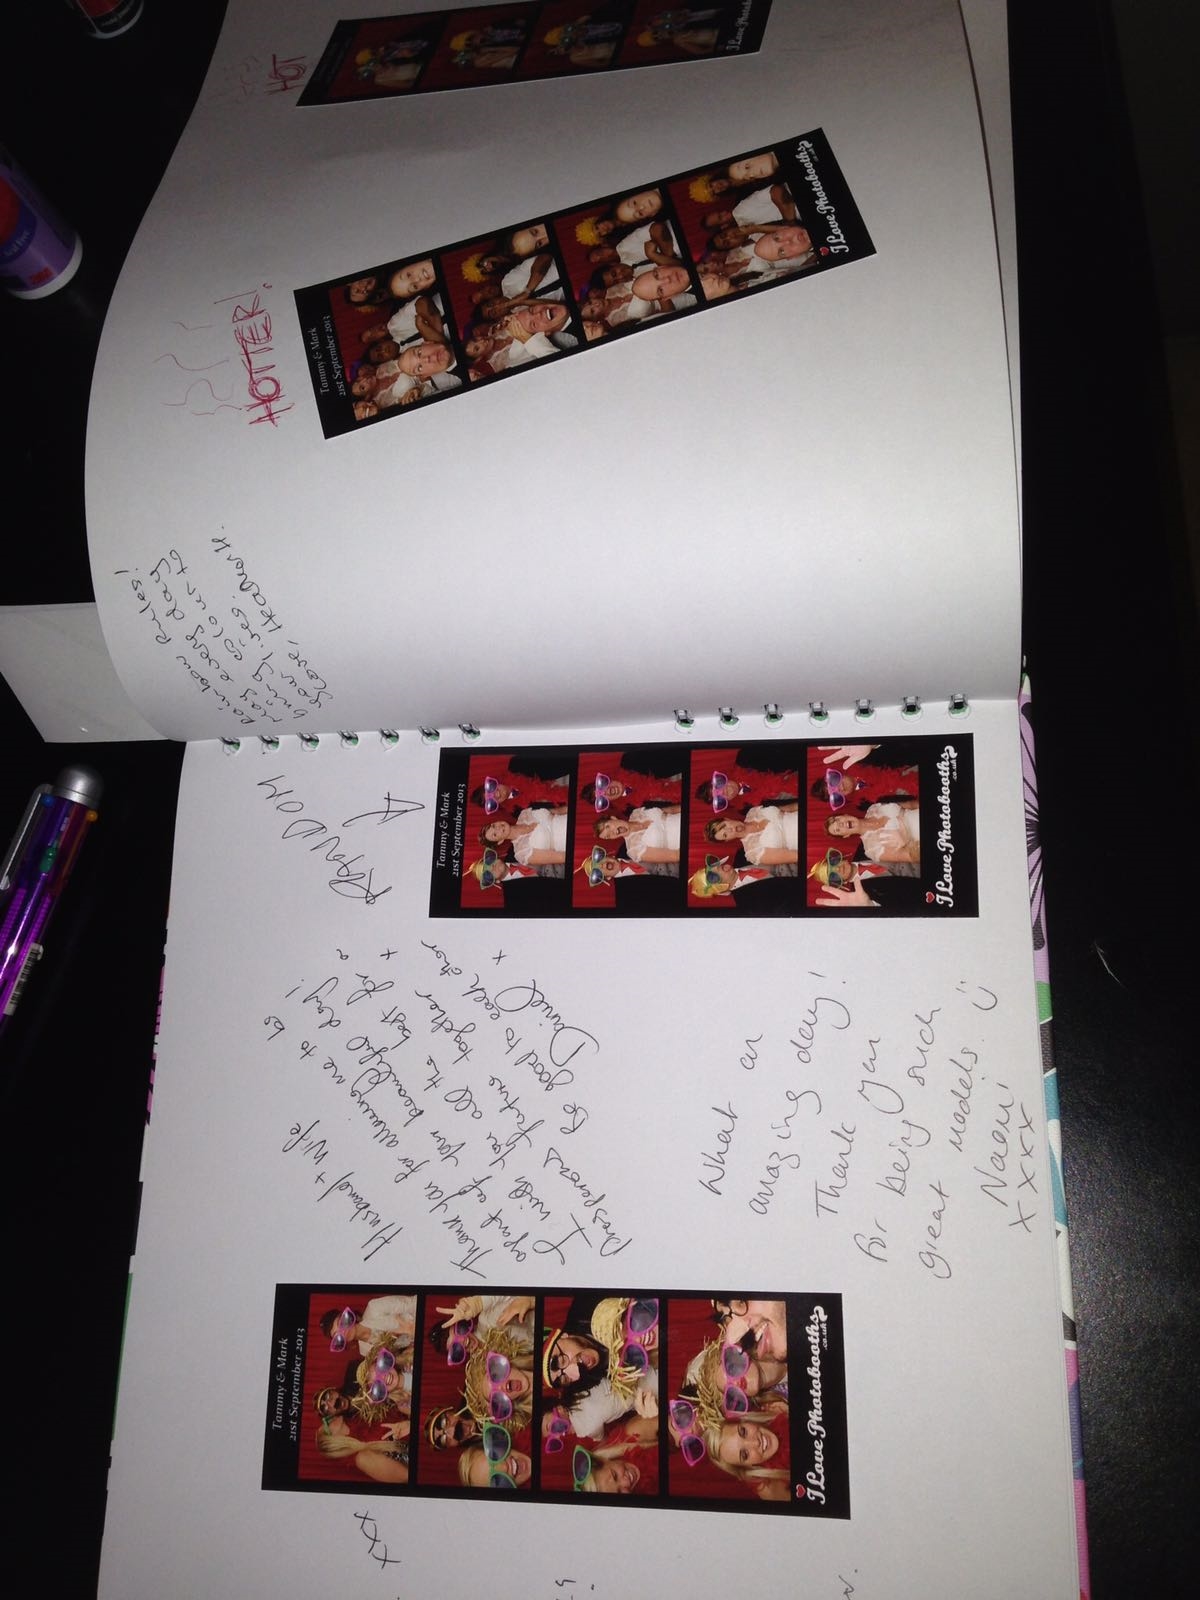 HOT
Tammy & Mark
21st September 2013
I Love Photobooths
.co.uk
HOTTER!
rainbow Rules!
may every day
bring colour to
your lives.
Love, Heathort.
RANDOM
Tammy & Mark
21st September 2013
I Love Photobooths
.co.uk
Husband + Wife
Thank you for allowing me to be
apart of your beautiful day!
I wish you all the best for a
prosperous future together x
Be good to each other
Daniel x
What an
amazing day!
Thank you
for being such
great models. ü
Naomi
xxxx
Tammy & Mark
21st September 2013
I Love Photobooths
.co.uk
xxx